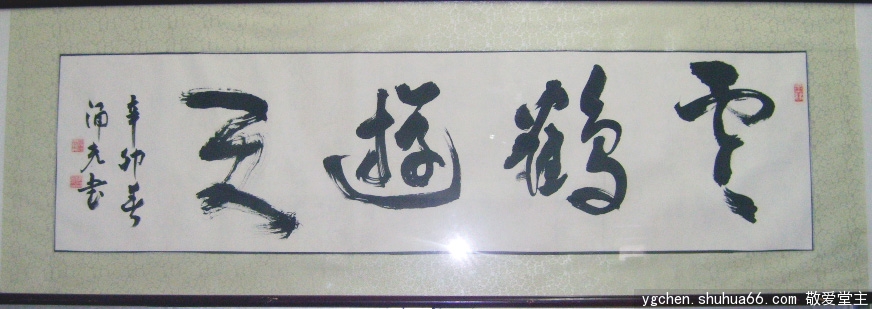 雲鶴遊天
辛卯春
涌光书
ygchen.shuhua66.com 敬爱堂主